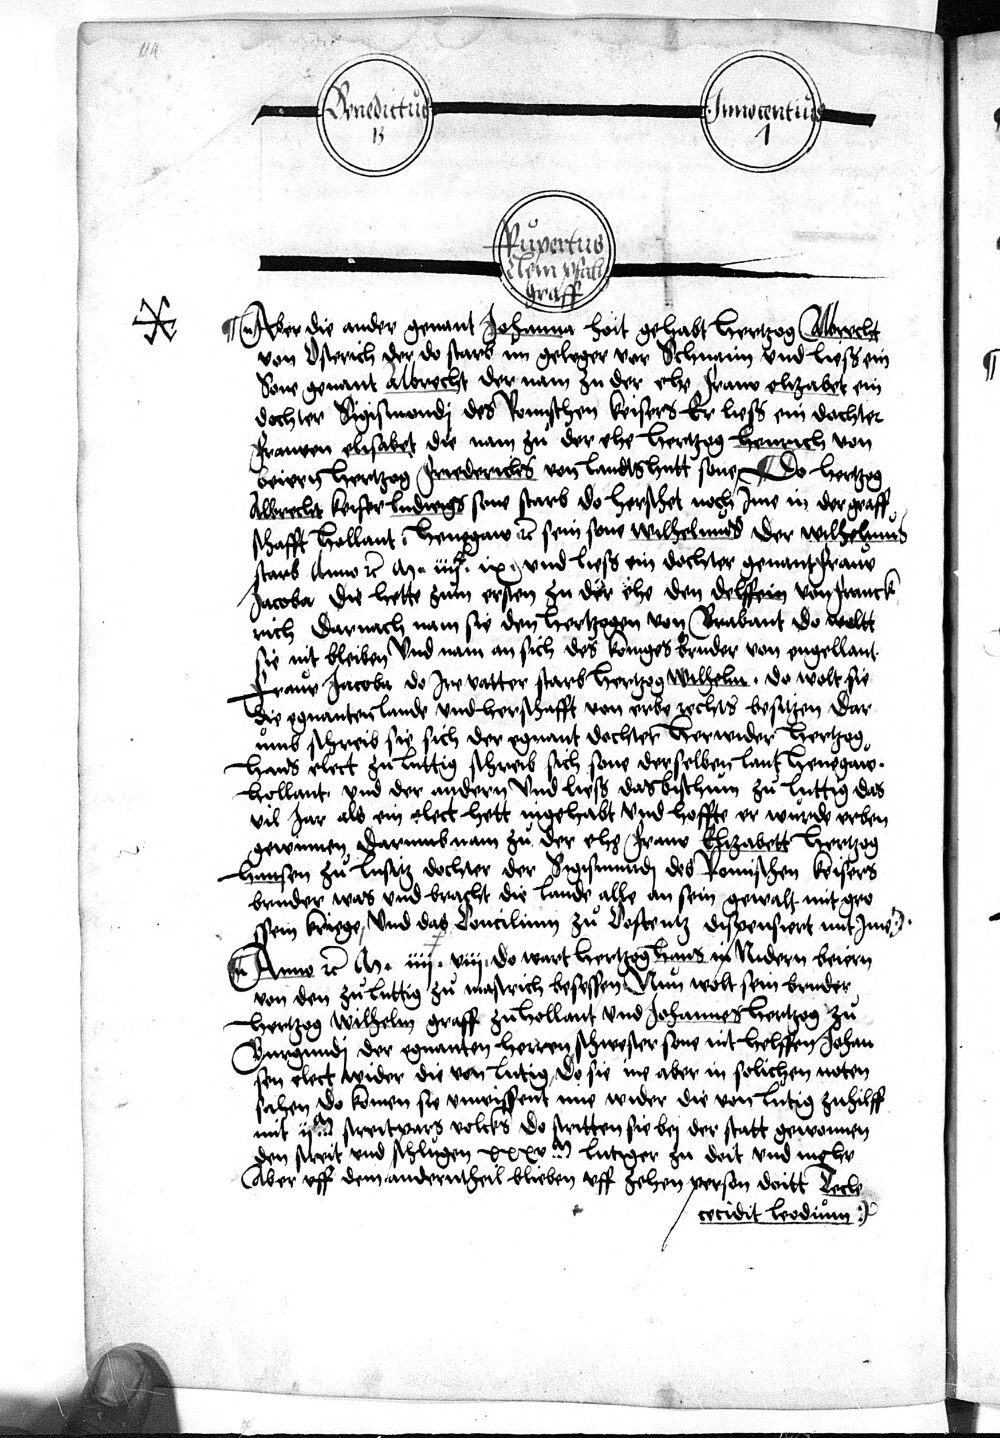 114
Benedictus
13
Innocentius
1
Rupertus
Clem pfalt
graff
Aber die ander genant Johanna hoit gehabt hertzog Albrecht
von Osterich der do starb im geleger vor Schnaim vnd liess ein
Sone genant Albrecht der nam zu der ehe frauw elizabet ein
dochter Sigismondj des Romschen keisers Er liess ein dochter
frauwen elisabet die nam zu der ehe hertzog henrich von
beiern hertzog friederichs von landtshutt sone Do hertzog
Albrecht keiser ludwigs sone starb do herschet noch Ime in der graff
schafft hollant henegaw etc sein sone wilhelmus der wilhelmus
starb Anno etc M iiijc ix vnd liess ein dochter genant frauw
Jacoba die hette zum ersten zu der ehe den delffein von franck
rich darnach nam sie den hertzogen von Brabant do woltt
sie nit bleiben Vnd nam an sich des koniges bruder von engellant
frauw Jacoba do Ire vatter starb hertzog wilhelm do wolt sie
die egnanten lande vnd herschafft von erbe rechts besitzen dar
umb schreib sie sich der egnant dochter herwider hertzog
hans elect zu luttig schreib sich sone der selben lant henegaw
hollant vnd der andern Vnd liess das bischtum zu luttig das
vil Jar als ein elect hett ingehabt vnd hoffte er wurde erben
gewinnen darumb nam zu der ehe frauw Elizabett hertzog
hansen zu lusitz dochter der Sigismundj des Romischen keisers
bruder was vnd bracht die lande alle an sein gewalt mit gro
ssem kriege Vnd das Concilium zu Costentz dispensiert mit Ime
Anno etc M iiijc viij do wart hertzog hans in Nidern beiern
von den zu luttig zu mastrich besessen Nun wolt sein bruder
hertzog wilhelm graff zu hollant vnd Johannes hertzog zu
Burgundj der egnanten herren schwester sone nit helffen Johan
sen elect wider die von lutig Do sie ine aber in solichen noten
sahen do komen sie vnwissent ime wider die von lutig zu hilff
mit streitpars volcks Do stritten sie bej der statt gewonnen
den streit vnd schlugen xxxvM lutiger zu doit vnd mehr
Aber vff dem andern theil blieben vff zehen person doitt Tecle
cecidit leodium